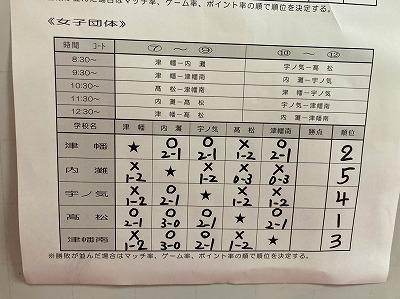 勝敗が並んだ場合はマッチ率、ゲーム率、ポイント率の順で順位を決定する。
《女子団体》
時間 コート ⑦ ～ ⑨ ⑩ ～ ⑫
8:30～ 津 幡―内 灘 宇ノ気―高 松
9:30～ 津 幡―津幡南 内 灘―宇ノ気
10:30～ 高 松―津幡南 津 幡―宇ノ気
11:30～ 内 灘―高 松 宇ノ気―津幡南
12:30～ 津 幡―高 松 内 灘―津幡南
学校名 津 幡 内 灘 宇ノ気 高 松 津幡南 勝点 順位
津 幡 ★ ○ 2-1 ○ 2-1 × 1-2 ○ 2-1 2
内 灘 × 1-2 ★ × 1-2 × 0-3 × 0-3 5
宇ノ気 × 1-2 ○ 2-1 ★ × 1-2 × 1-2 4
高 松 ○ 2-1 ○ 3-0 ○ 2-1 ★ ○ 2-1 1
津幡南 × 1-2 ○ 3-0 ○ 2-1 × 1-2 ★ 3
※勝敗が並んだ場合はマッチ率、ゲーム率、ポイント率の順で順位を決定する。